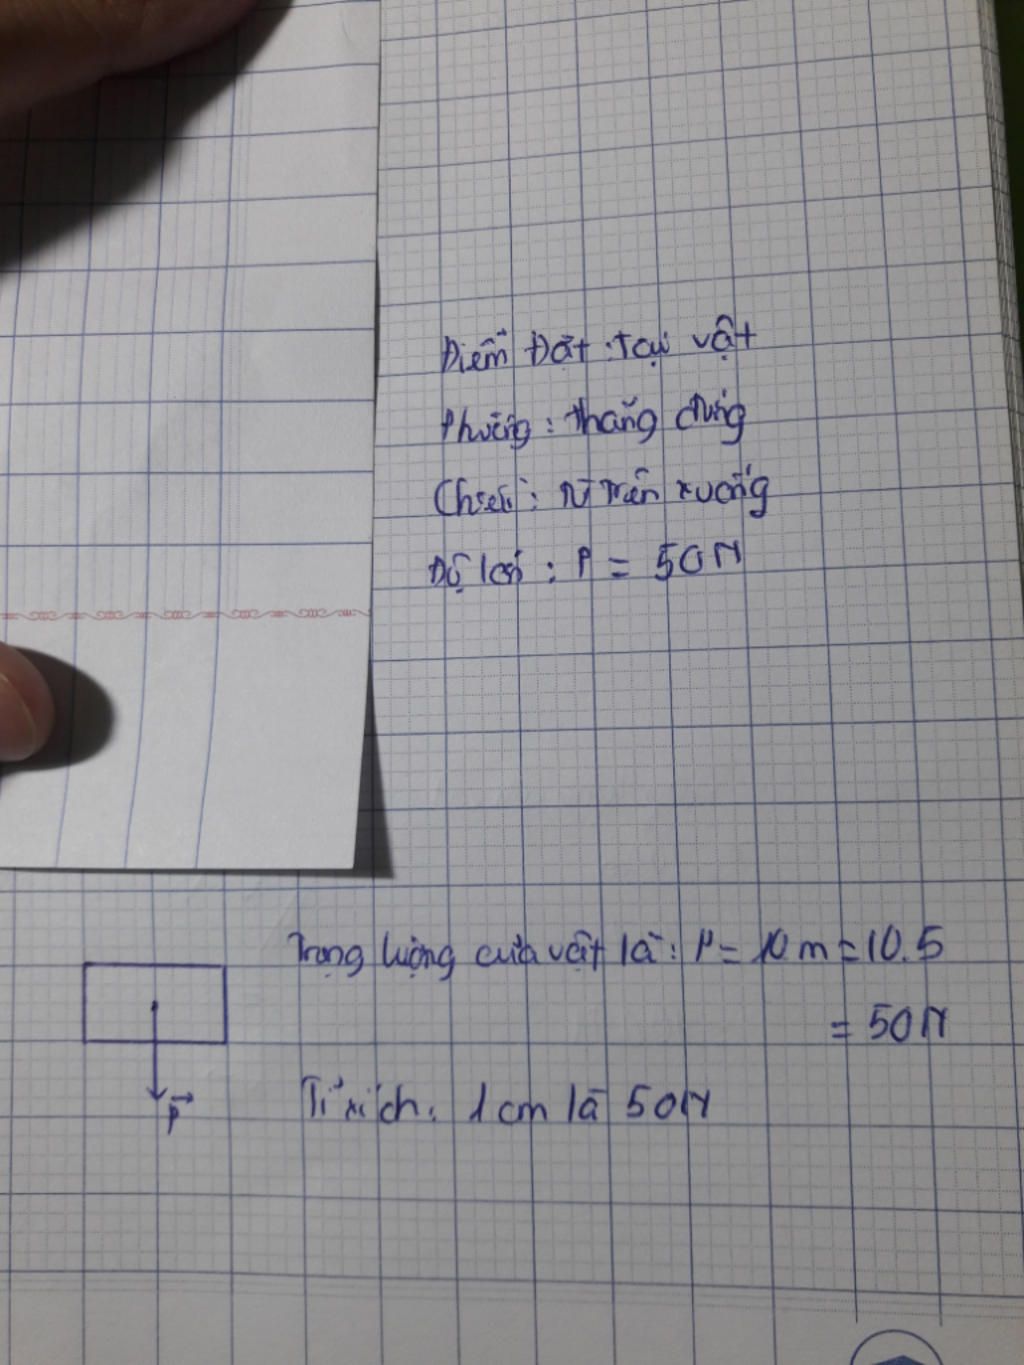 Điểm Đặt: Tại vật
Phương: thẳng đứng
Chiều: Từ trên xuống
Độ lớn: P = 50N
Trọng lượng của vật là: P = 10m = 10.5
= 50N
P
Tỉ xích: 1cm là 50N